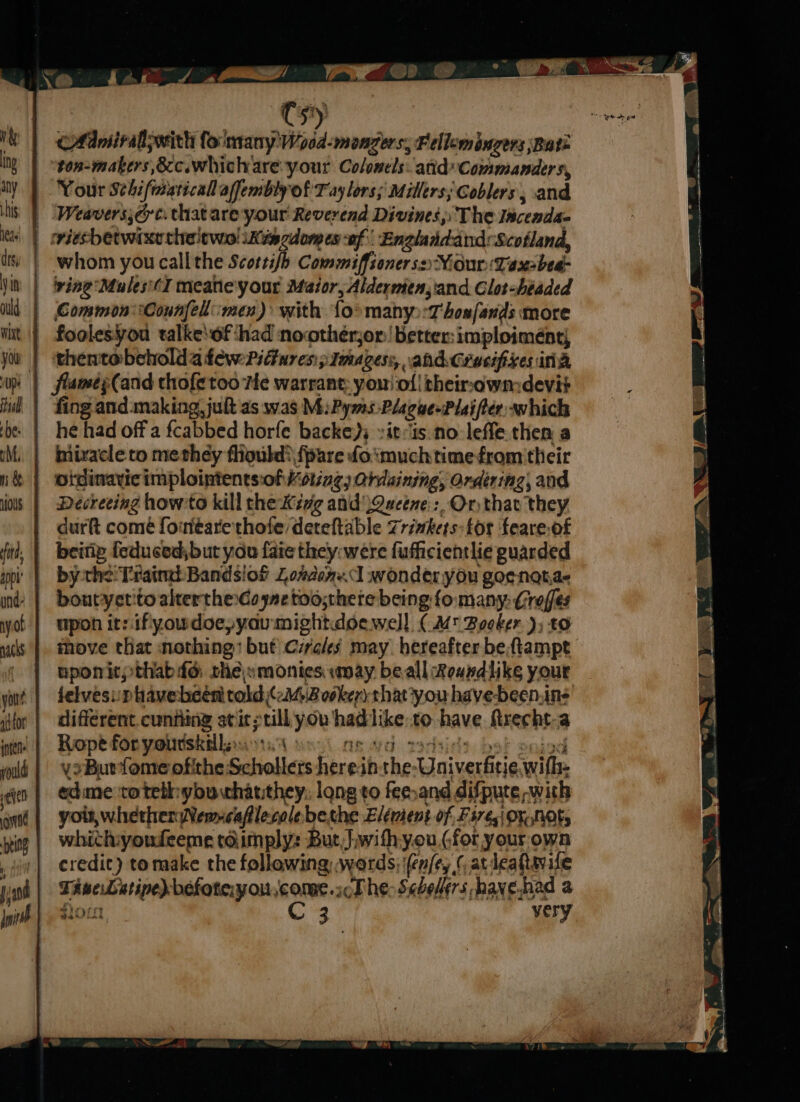 (5)
Admirall, with so many Wood-mongers, Fellmongers, But-
ton-makers, &c. which are your Colonels and Commanders,
Your Schismaticall assembly of Taylors, Millers, Coblers, and
Weavers, &c. that are your Reverend Divines, The Incenda-
ries betwixt the two Kingdomes of England and Scotland,
whom you call the Scottish Commissioners: Your Tax-bea-
ring Mules (I meane your Maior, Aldermen, and Clot-headed
Common Counsell men) with so many Thousands more
fooles you talke of had no other, or better imploiment,
then to behold a few Pictures, Images, and Crucifixes in a
flame, (and those too Ile warrant you of their own devi-
sing and making, just as was M. Pyms Plague-Plaister which
he had off a scabbed horse backe), it is no lesse then a
miracle to me they should spare so much time from their
ordinarie imploiments of Voting, Ordaining, Ordering, and
Decreeing how to kill the King and Queene, Or that they
durst come so neare those detestable Trinkets for feare of
being seduced, but you saie they were sufficientlie guarded
by the Traind Bands of London. I wonder you goe not a-
bout yet to alter the Coyne too, there being so many Crosses
upon it: if you doe, you might doe well (Mr Booker) to
move that nothing but Circles may hereafter be stampt
upon it, that so the monies may be all Round like your
selves.
different cunning at it, till you had like to have strecht a
Rope for your skill,
But some of the Schollers here in the University wish-
ed me to tell you that they long to see, and dispute with
you, whether New-castle cole be the Element of Fire, or not,
which you seeme to imply: But, I wish you (for your own
credit) to make the following words sense, (at least wife
before you come. The Schollers have had a
C 3 very